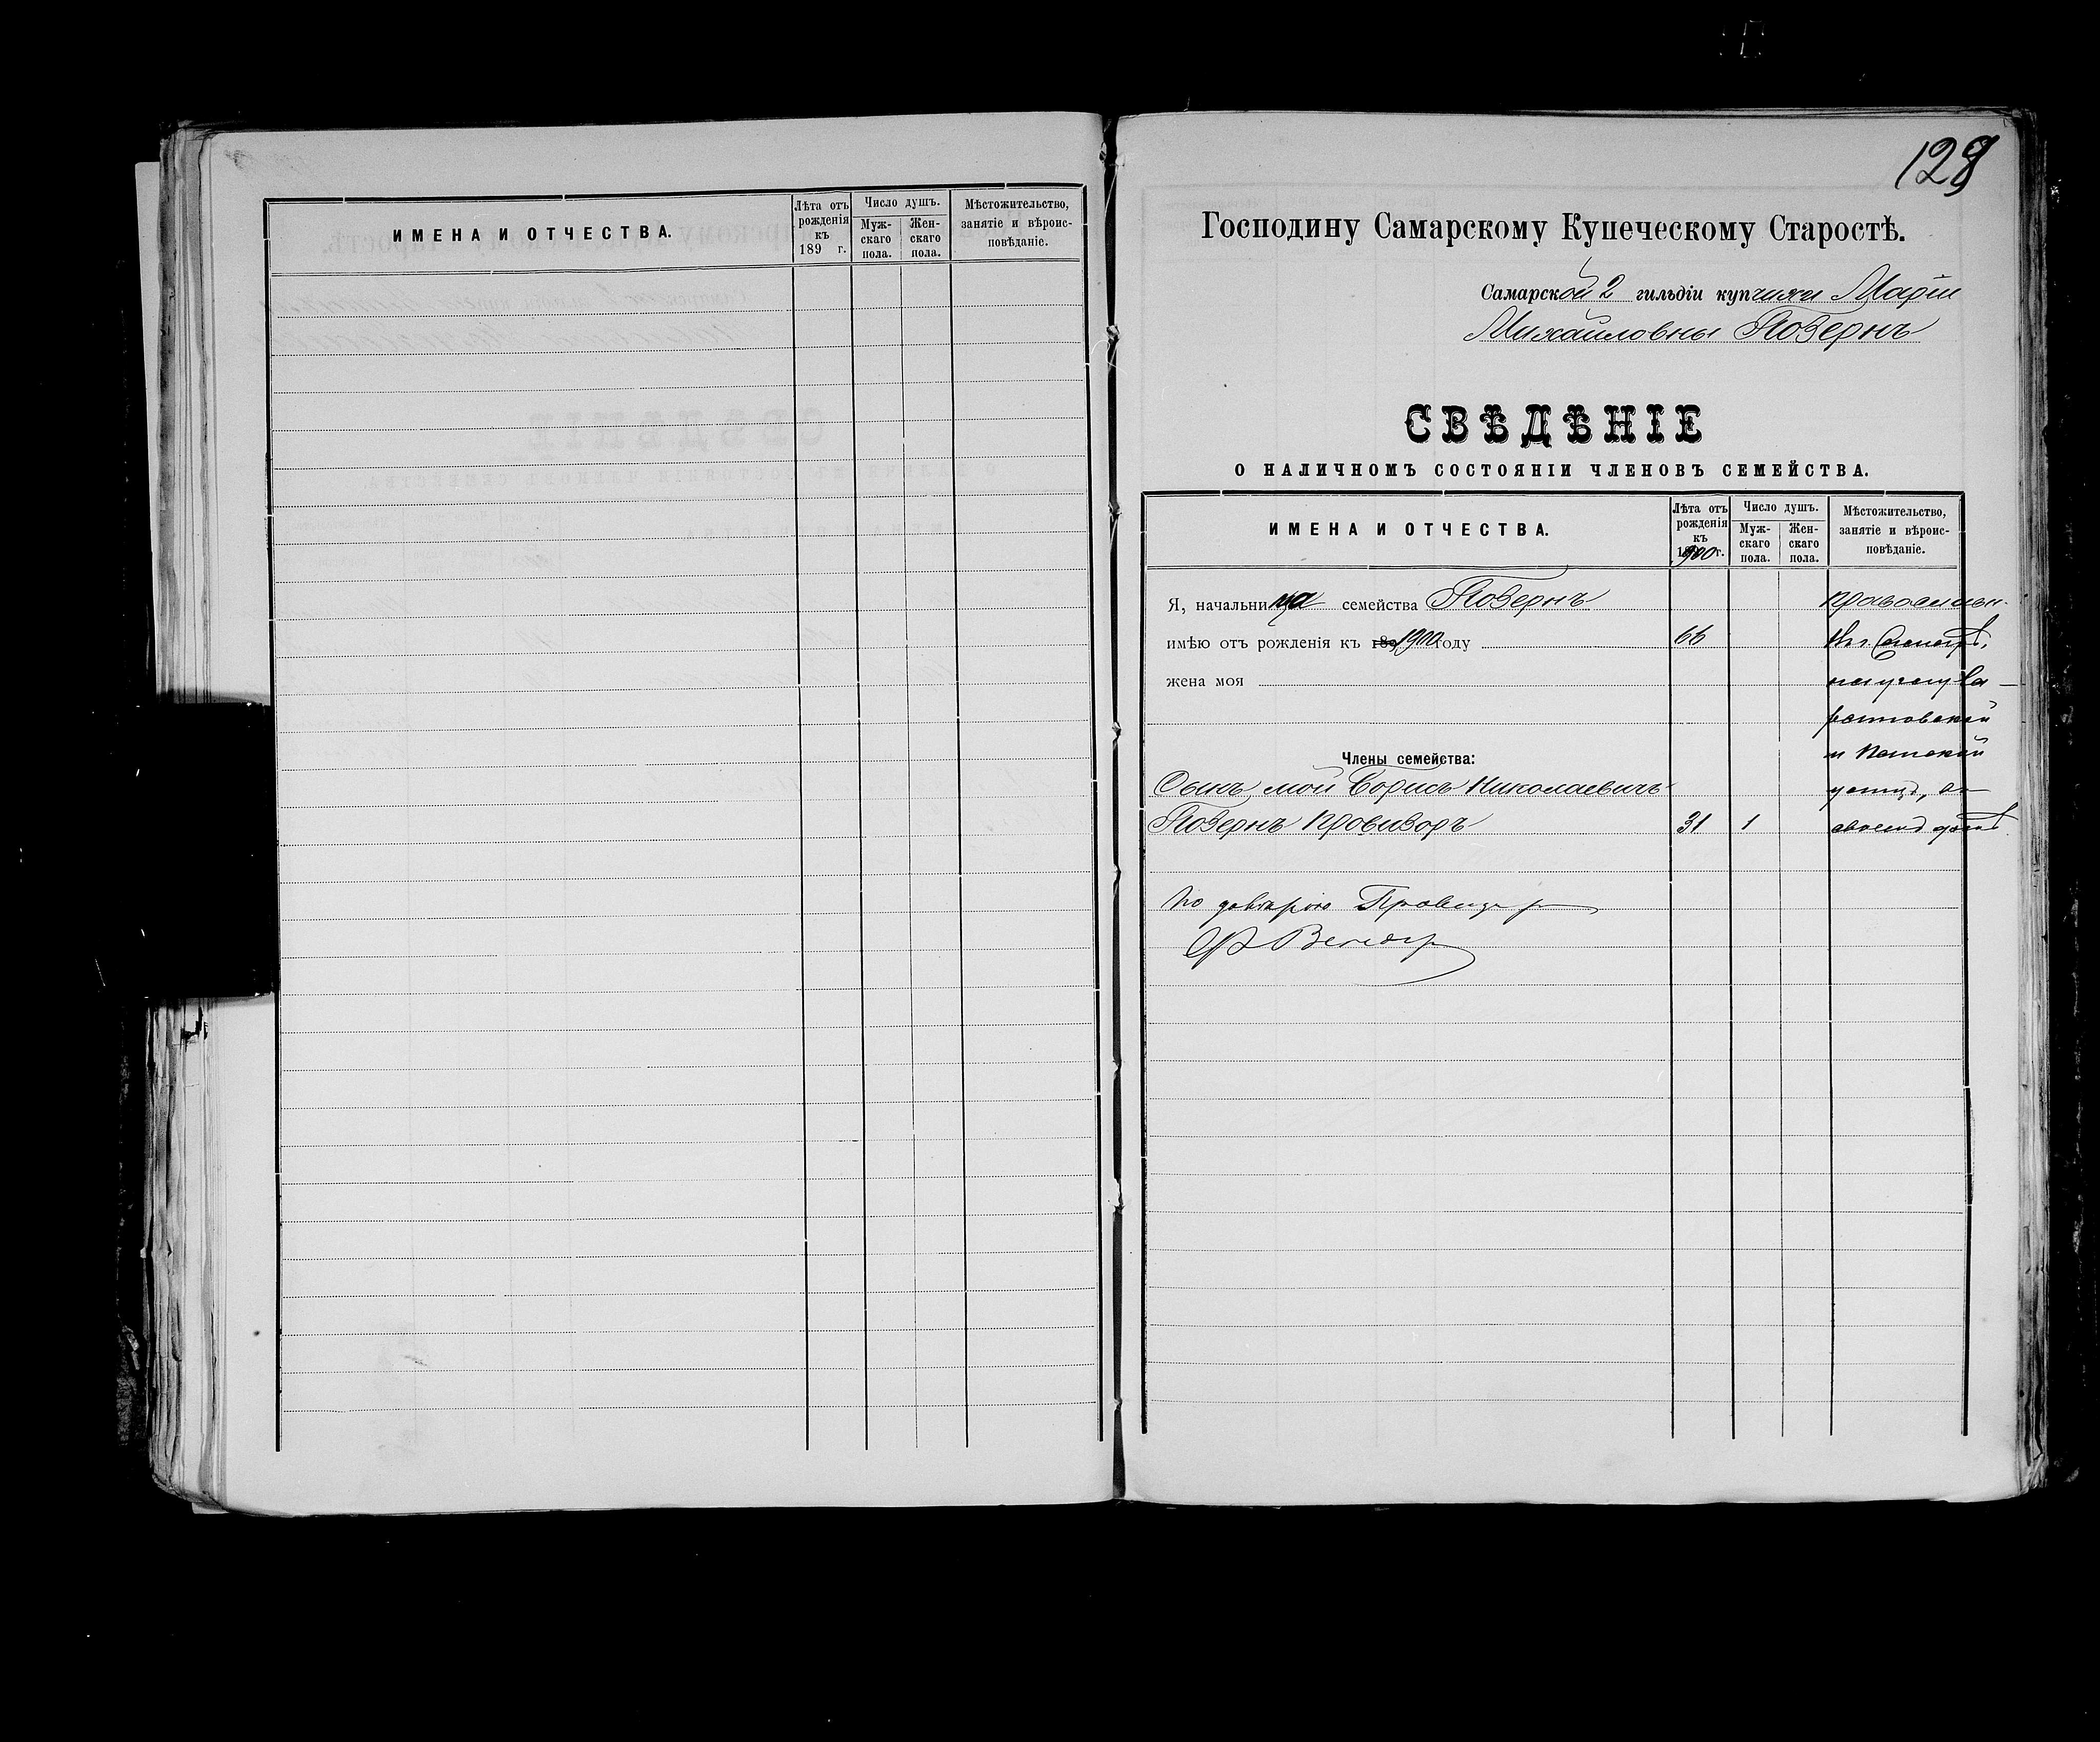 ИМЕНА И ОТЧЕСТВА.
Лѣта отъ рожденія къ 189 г.
Число душъ.
Мужскаго пола.
Женскаго пола.
Мѣстожительство, занятіе и вѣроисповѣданіе.
128
Господину Самарскому Купеческому Старостѣ.
Самарской 2 гильдіи купчихи Маріи
Михайловны Позернъ
СВѢДѢНІЕ
О НАЛИЧНОМЪ СОСТОЯНІИ ЧЛЕНОВЪ СЕМЕЙСТВА.
ИМЕНА И ОТЧЕСТВА.
Лѣта отъ рожденія къ 1900 г.
Число душъ.
Муж-скаго пола.
Жен-скаго пола.
Мѣстожительство, занятіе и вѣроис-повѣданіе.
Я, начальница семейства Позернъ православн.
имѣю отъ рожденія къ 1900 году 66 въ г. Самарѣ,
жена моя на углу Са-
ратовской
Члены семейства: и
Сынъ мой Борисъ Николаевичъ улицъ, въ
Позернъ Провизоръ 31 1 своемъ домѣ.
По довѣрію Провизор